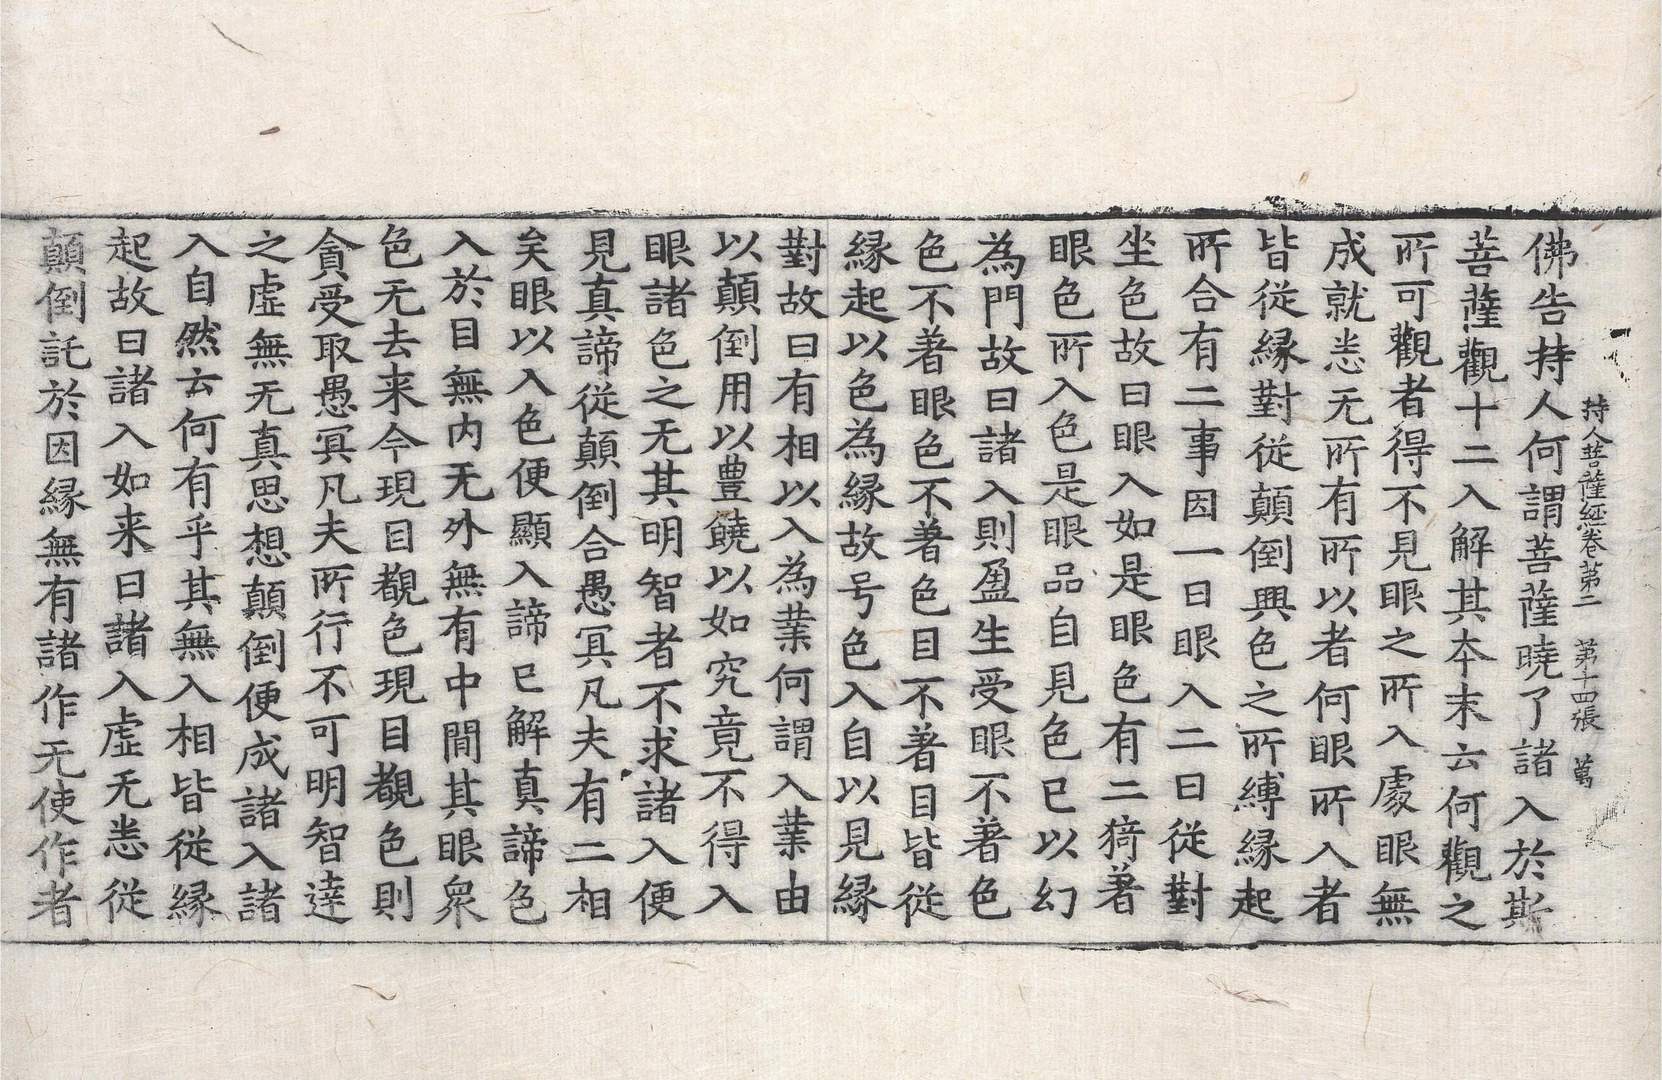 持人菩薩經卷第二 第十四張 萬
佛告持人何謂菩薩曉了諸入於斯
菩薩觀十二入解其夲末云何觀之
所可觀者得不見眼之所入處眼無
成就恙无所有所以者何眼所入者
皆從緣對從顛倒興色之所縛緣起
所合有二事因一曰眼入二曰從對
坐色故曰眼入如是眼色有二猗著
眼色所入色是眼品自見色已以幻
為門故曰諸入則盈生受眼不著色
色不著眼色不著色目不著目皆從
緣起以色為緣故号色入自以見緣
對故曰有相以入為業何謂入業由
以顛倒用以豊饒以如究竟不得入
眼諸色之无其明智者不求諸入便
見真諦從顛倒合愚冥凡夫有二相
矣眼以入色便顯入諦已解真諦色
入於目無内无外無有中間其眼衆
色无去来今現目覩色現目覩色則
貪受取愚冥凡夫所行不可明智達
之虛無无真思想顛倒便成諸入諸
入自然云何有乎其無入相皆從緣
起故曰諸入如来曰諸入虛无恙從
顛倒託於因緣無有諸作无使作者